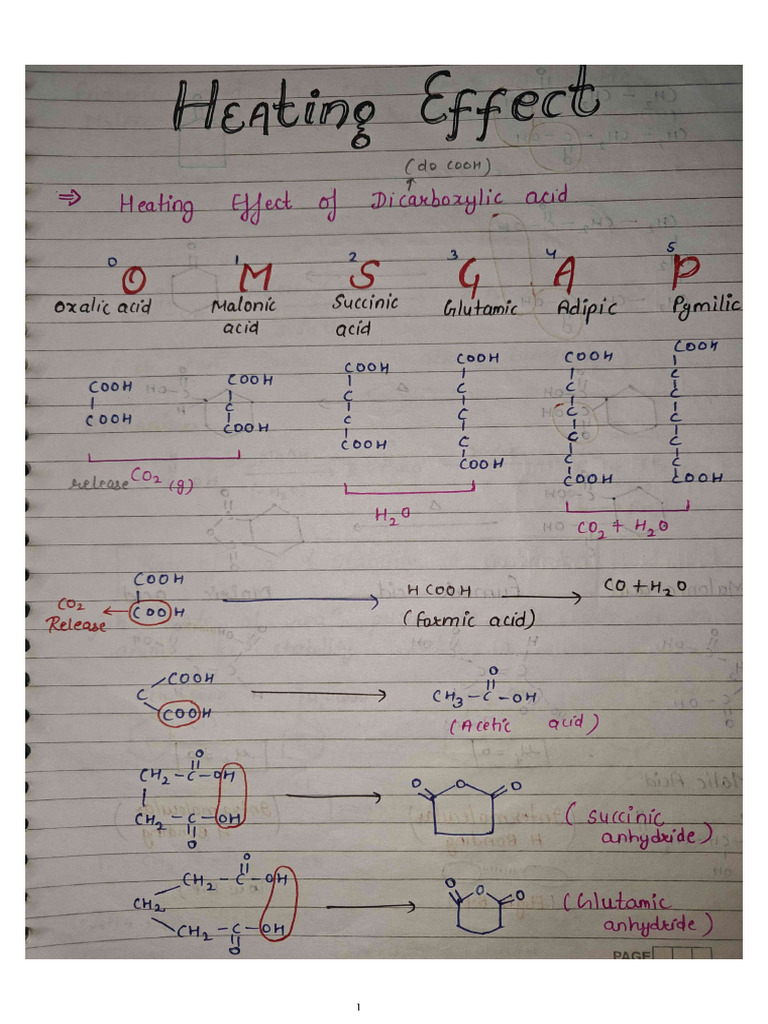 Heating Effect
(do COOH)
⇒ Heating Effect of Dicarboxylic acid
0 1 2 3 4 5
O M S G A P
Oxalic acid Malonic acid Succinic acid Glutamic Adipic Pymilic
COOH COOH COOH COOH COOH COOH
COOH C C C C C
COOH C C C C
COOH C C C
COOH C C
COOH C
COOH
release CO2 (g)
H2O
CO2 + H2O
COOH
COOH
CO2 Release
HCOOH
(Formic acid)
CO + H2O
COOH
C
COOH
O
CH3 - C - OH
(Acetic acid)
O
CH2 - C - OH
CH2 - C - OH
O
O O O
(Succinic
anhydride)
O
CH2 - C - OH
CH2
CH2 - C - OH
O
O O O
(Glutamic
anhydride)
PAGE
1